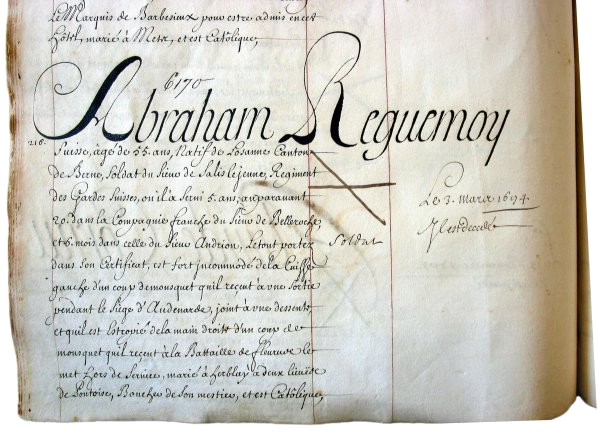 le Marquis de Barbesieux pour estre admis en cet
Hôtel, marié à Metz, et est Catôlique,
6170
Abraham Reguemoy
216.
Suisse, âgé de 55. ans, Natif de Losanne Canton
de Berne, Soldat du Sieur de Salis le jeune, Regiment
des Gardes Suisses, où il a servi 5. ans, auparavant
20. dans la Compagnie franche du Sieur de Belleroche,
et 6. mois dans celle du Sieur Andrion, Le tout porté
dans son Certificat, est fort incommodé de la Cuisse
gauche d'un coup de mousquet qu'il reçeut à une Sortie
pendant le Siège d'Audenarde, joint à une dessente,
et qu'il est Estropié de la main droite d'un coup de
mousquet qu'il reçeut à la Battaille de fleurus le
met hors de Service, marié à herblay à deux lieües
de Pontoise, Boucher de son mestier, et est Catôlique,
Soldat
Le 3. Marcx 1694.
Il est decedé